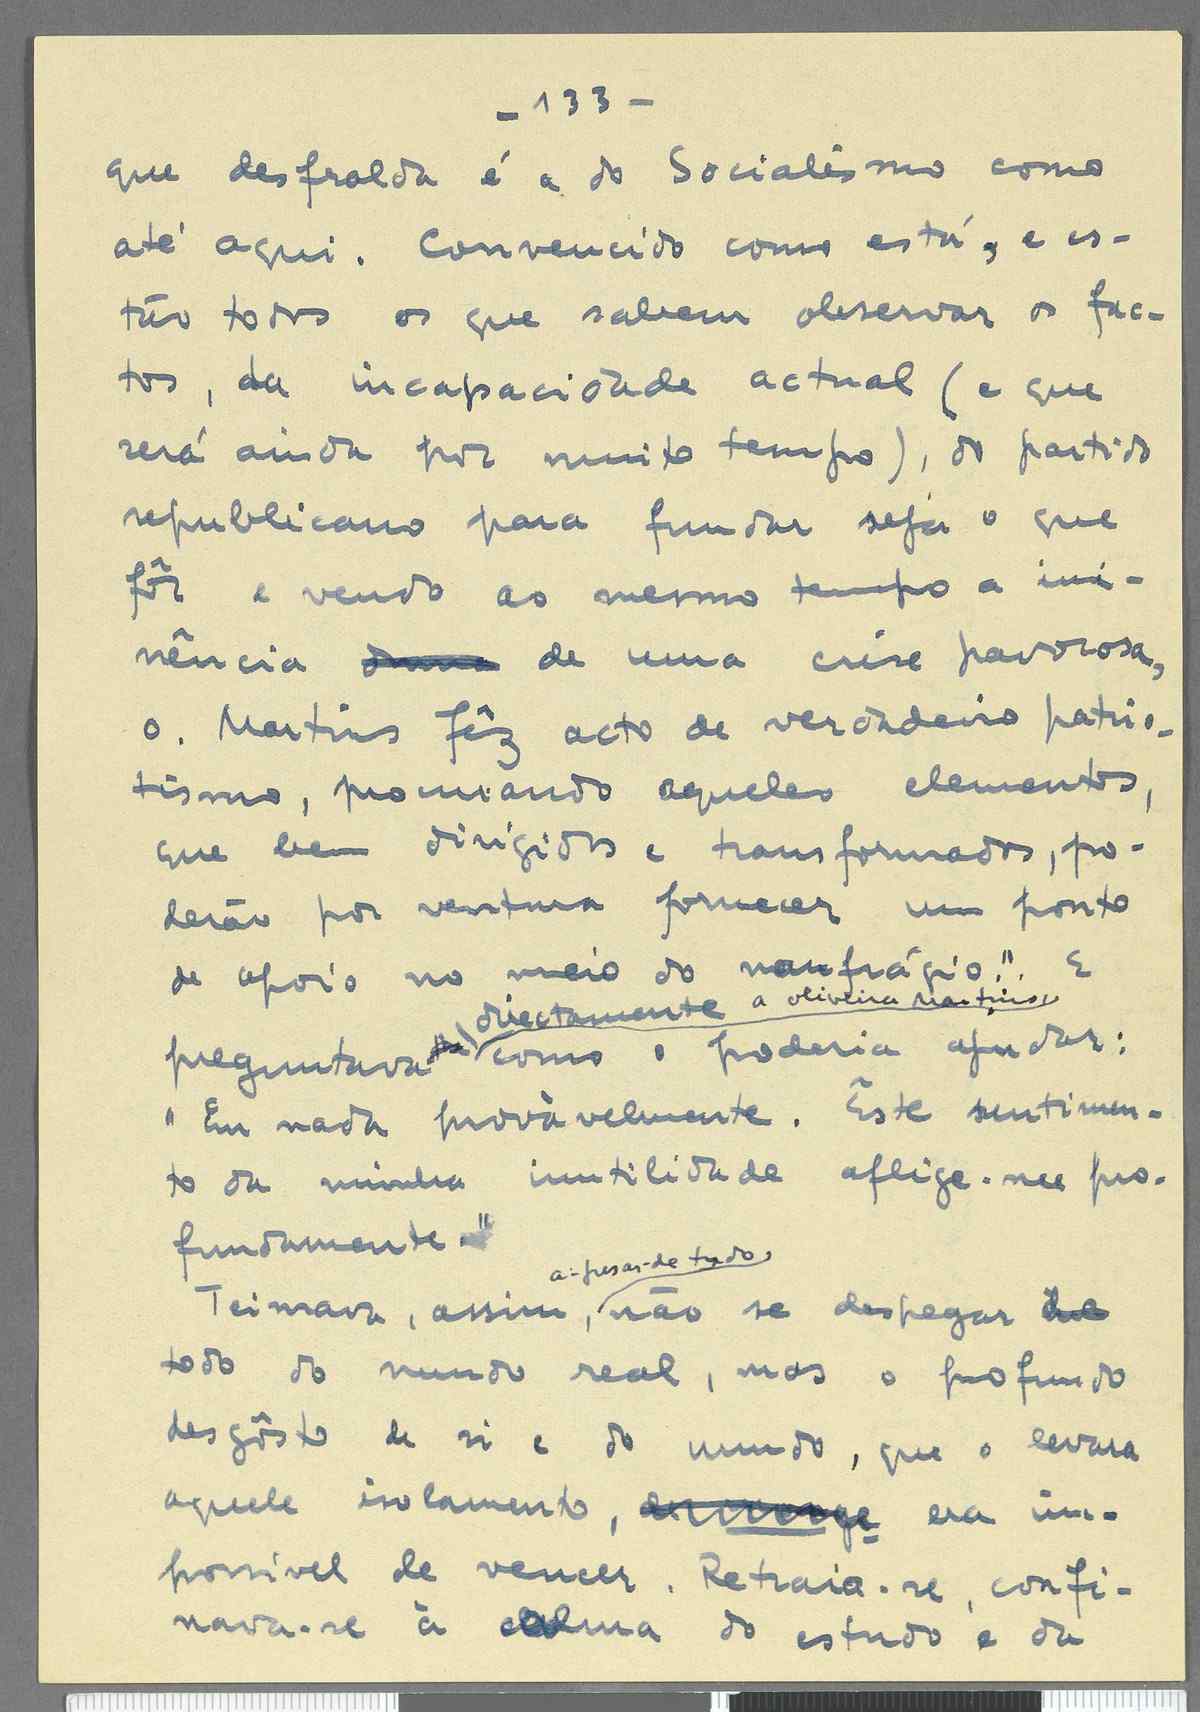 - 133 -
que desfralda é a do Socialismo como
até aqui. Convencido como está, e es-
tão todos os que sabem observar os fac-
tos, da incapacidade actual (e que
será ainda por muito tempo), do partido
republicano para fundar seja o que
fôr e vendo ao mesmo tempo a imi-
nência de uma crise pavorosa,
O. Martins fêz acto de verdadeiro patrio-
tismo, procurando aqueles elementos,
que bem dirigidos e transformados, po-
derão por ventura fornecer um ponto
de apoio no meio do naufrágio.". E
directamente a Oliveira Martins,
preguntava como o poderia ajudar:
"Em nada provàvelmente. Êste sentimen-
to da minha inutilidade aflige-me pro-
fundamente."
a-pesar-de tudo,
Teimava, assim, não se despegar de
todo do mundo real, mas o profundo
desgôsto de si e do mundo, que o levara
aquele isolamento, era im-
possível de vencer. Retraía-se, confi-
nava-se à calma do estudo e da